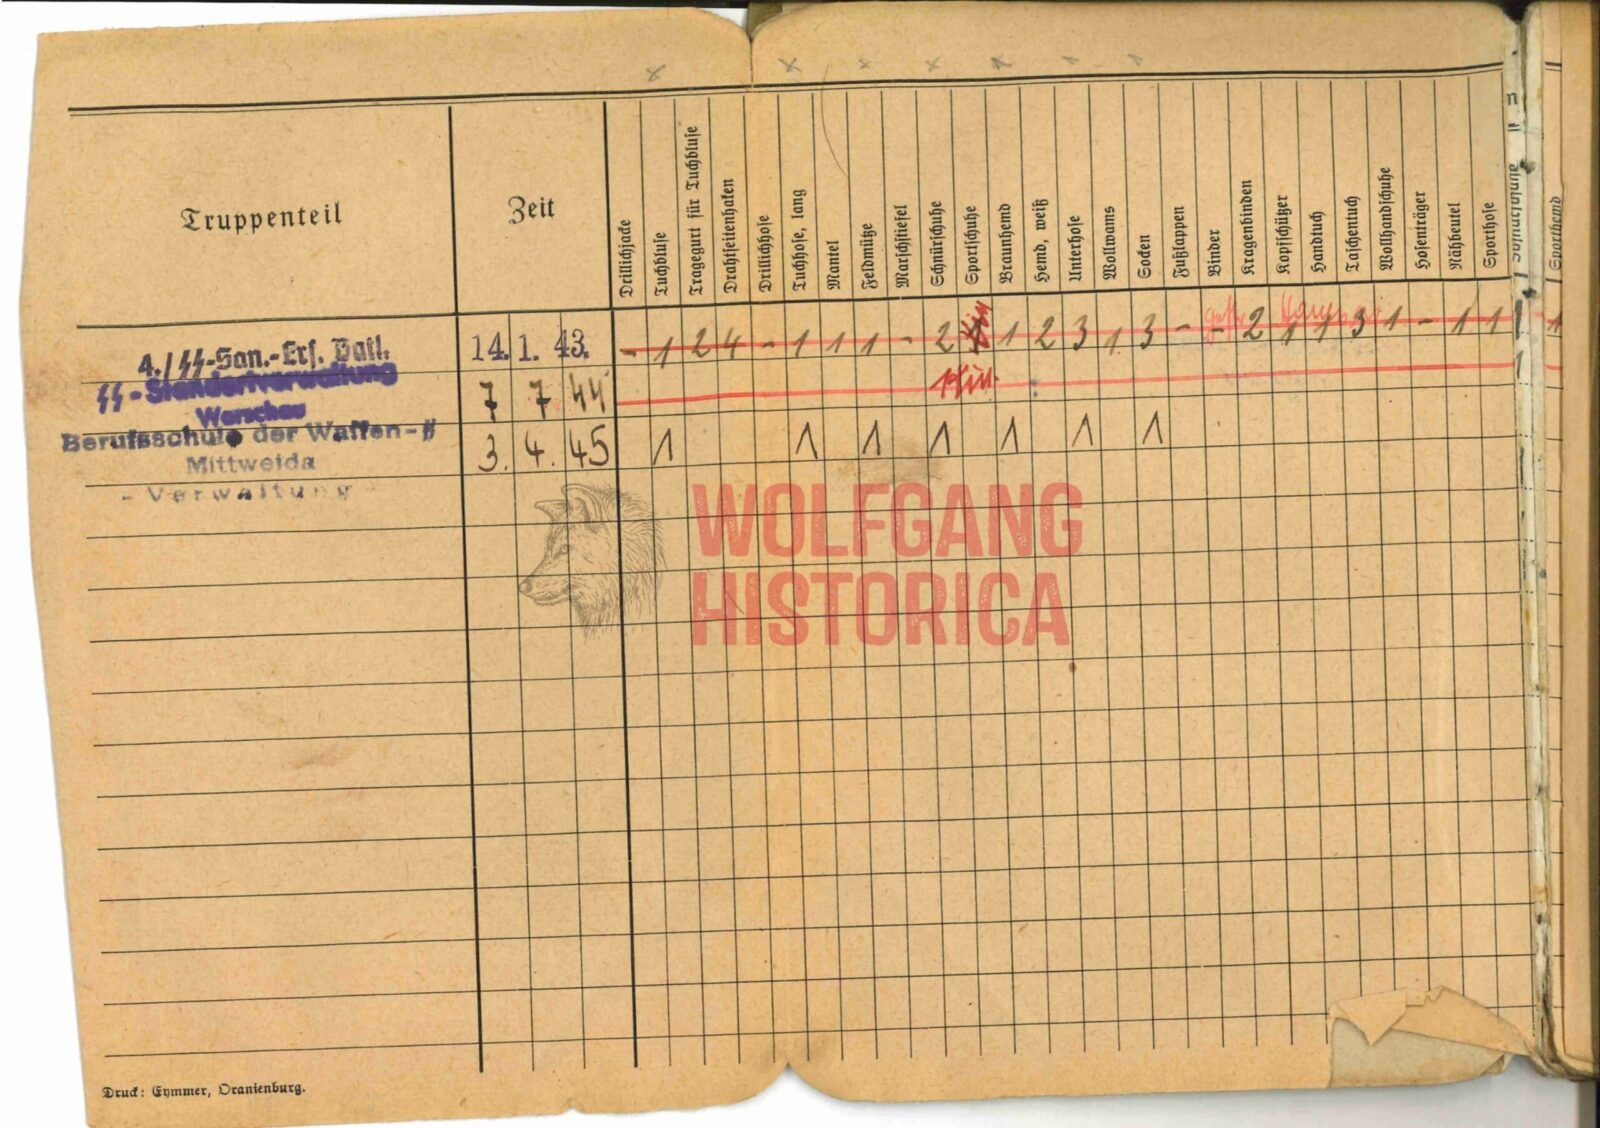 Truppenteil
Zeit
Drillichjacke
Tuchbluse
Tragegurt für Tuchbluse
Drahtseitenhaken
Drillichhose
Tuchhose, lang
Mantel
Feldmütze
Marschstiefel
Schnürschuhe
Sportschuhe
Braunhemd
Hemd, weiß
Unterhose
Wollwams
Socken
Fußlappen
Binder
Kragenbinden
Kopfschützer
Handtuch
Taschentuch
Wollhandschuhe
Hosenträger
Nähbeutel
Sporthose
Sporthemd
4./SS-San.-Ers. Batl. 14. 1. 43. - 1 2 4 - 1 1 1 - 2 1 2 3 1 3 - - 2 1 1 3 1 - 1 1 1
SS-Standortverwaltung
Warschau 7 7 44
Berufsschule der Waffen-SS
Mittweida 3. 4. 45 1 1 1 1 1 1 1
- Verwaltung -
WOLFGANG
HISTORICA
Druck: Eymmer, Oranienburg.